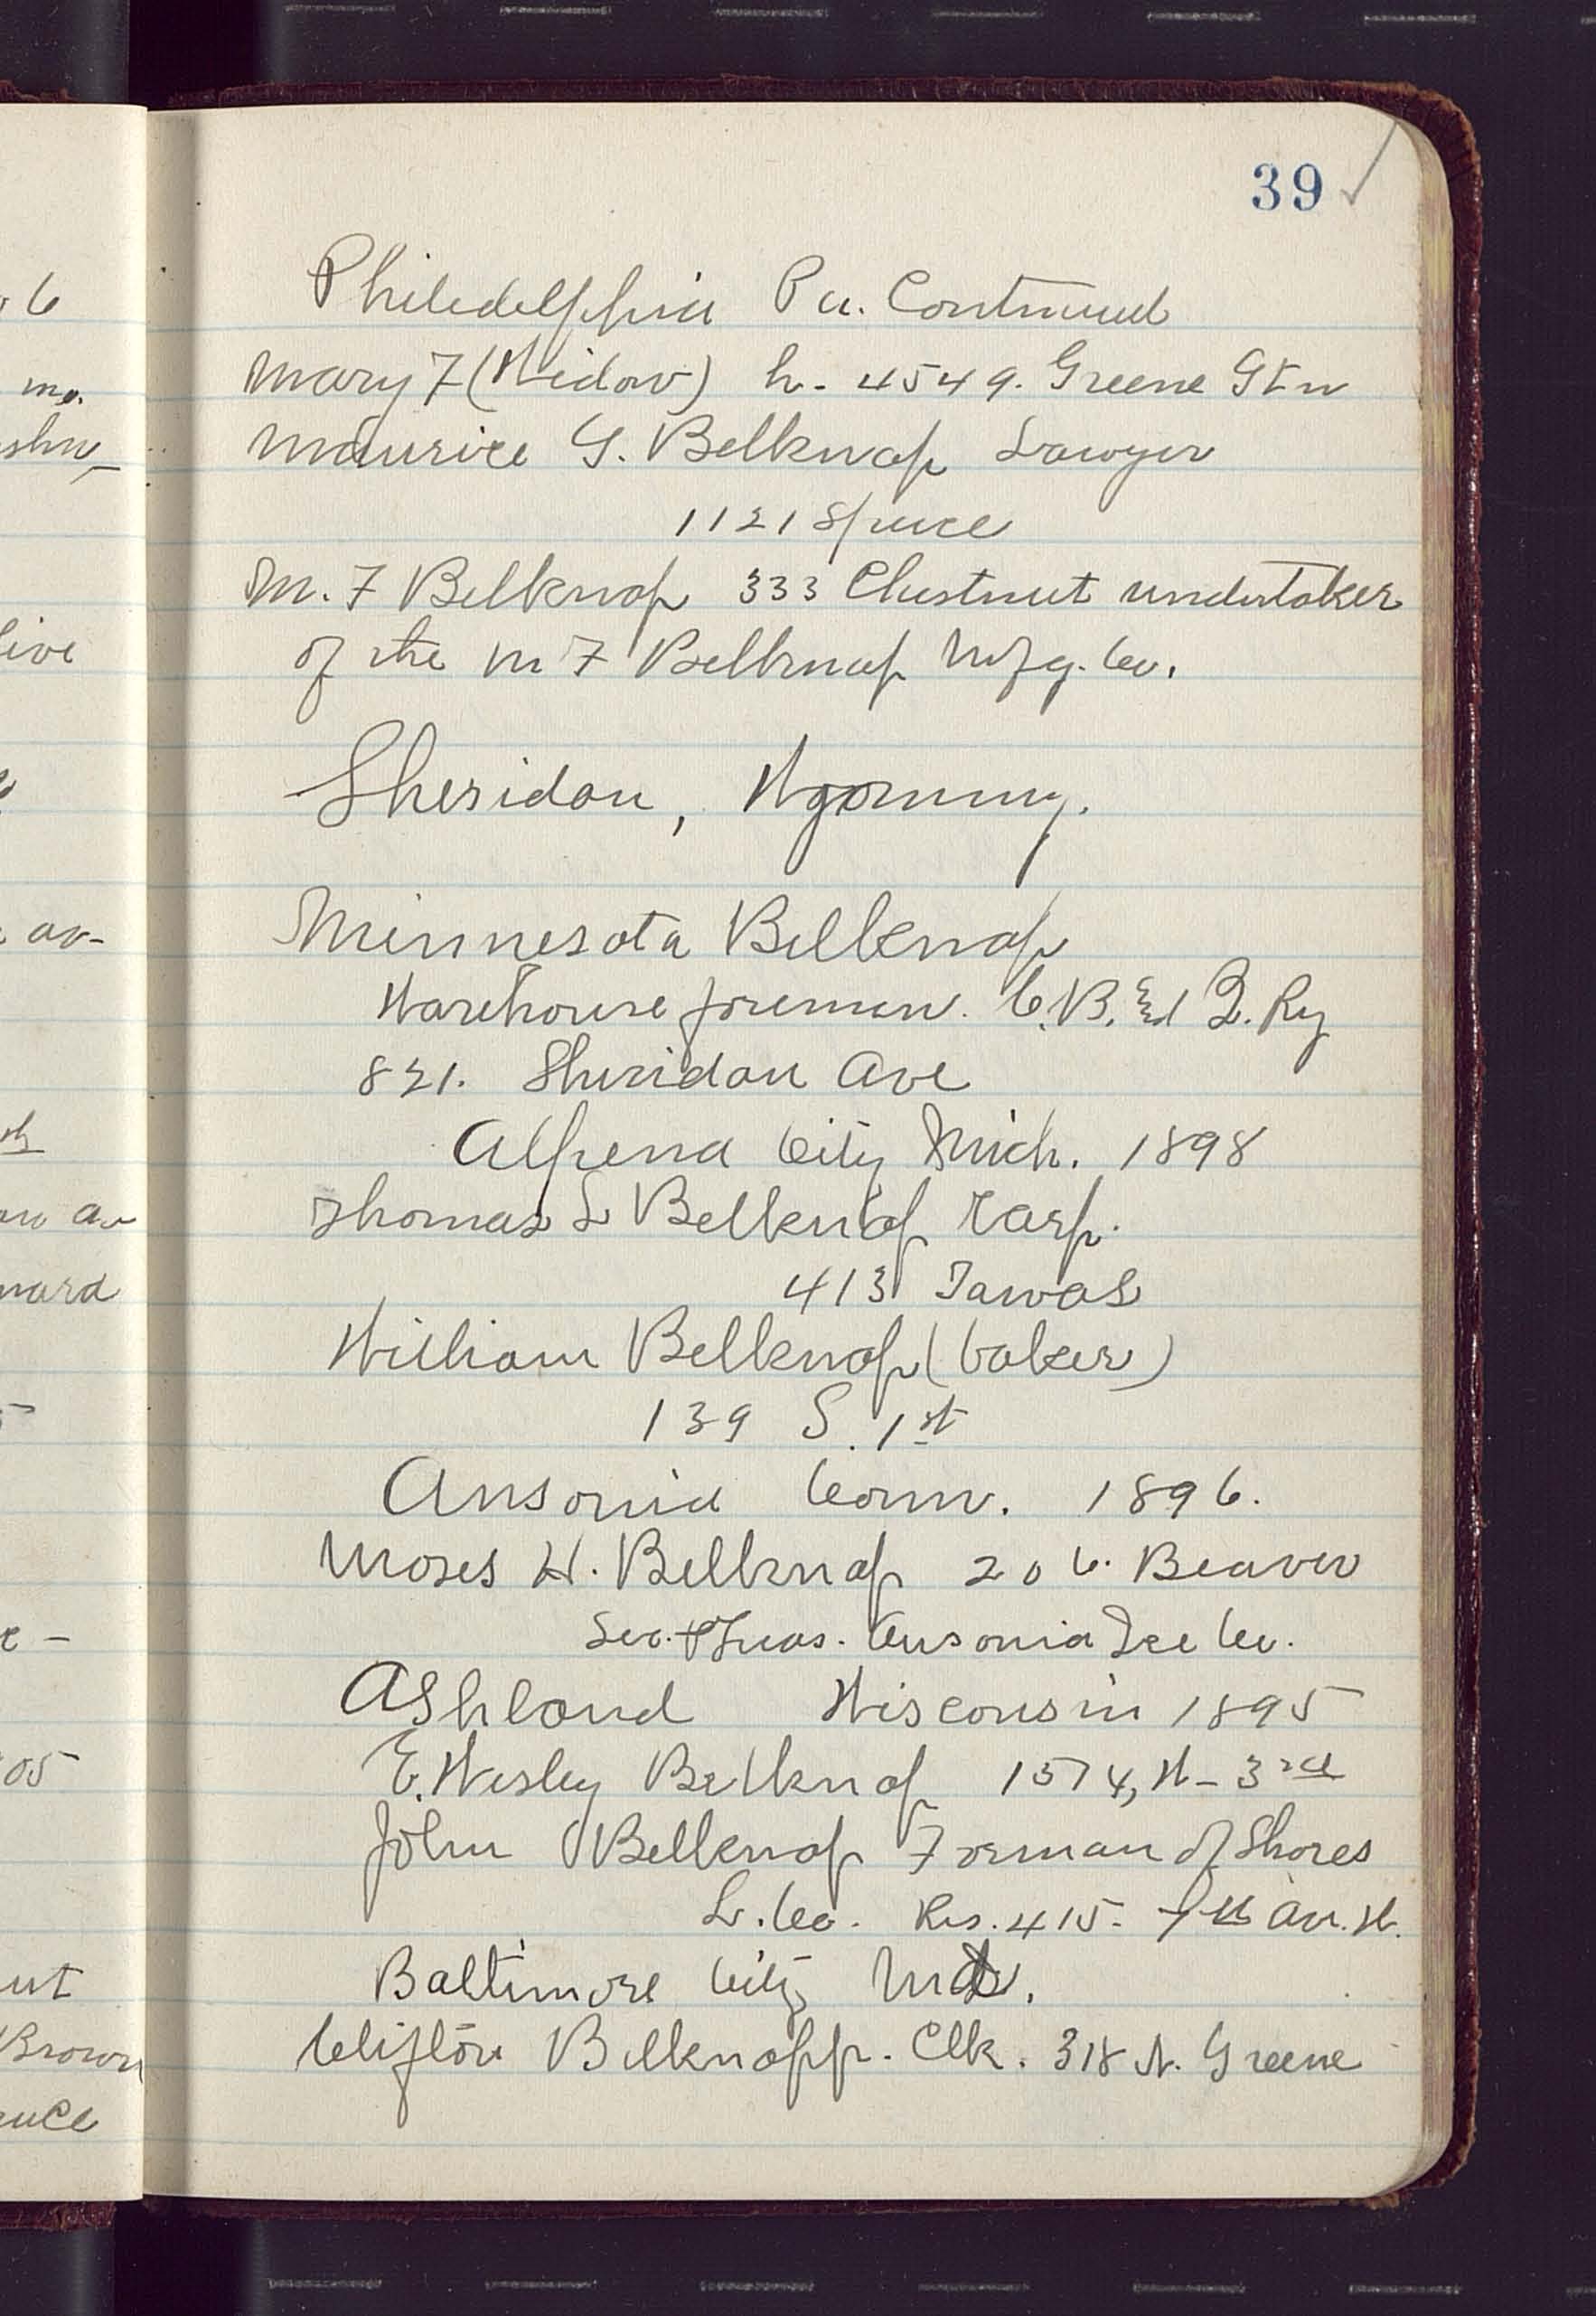 39
Philadelphia Pa. Continued
Mary F (Widow) h. 4549. Greene Gtn
Maurice G. Belknap Lawyer
1121 Spruce
M. F Belknap 333 Chestnut undertaker
of the M F Belknap Mfg. Co.
Sheridan, Wyoming.
Minnesota Belknap
Warehouse foreman. C. B. & Q. Ry
821. Sheridan Ave
Alpena City Mich. 1898
Thomas L Belknap Carp.
413 Tawas
William Belknap (baker)
139 S. 1st
Ansonia Conn. 1896.
Moses H. Belknap 206. Beaver
Sec. + Treas. Ansonia Ice Co.
Ashland Wisconsin 1895
E. Wesley Belknap 1514, W- 3rd
John Belknap Forman of Shores
L. Co. Res. 415- 7th Av. W.
Baltimore City Md.
Clifton Belknapp. Clk. 318 N. Greene
6
mo.
av-
05
Brown